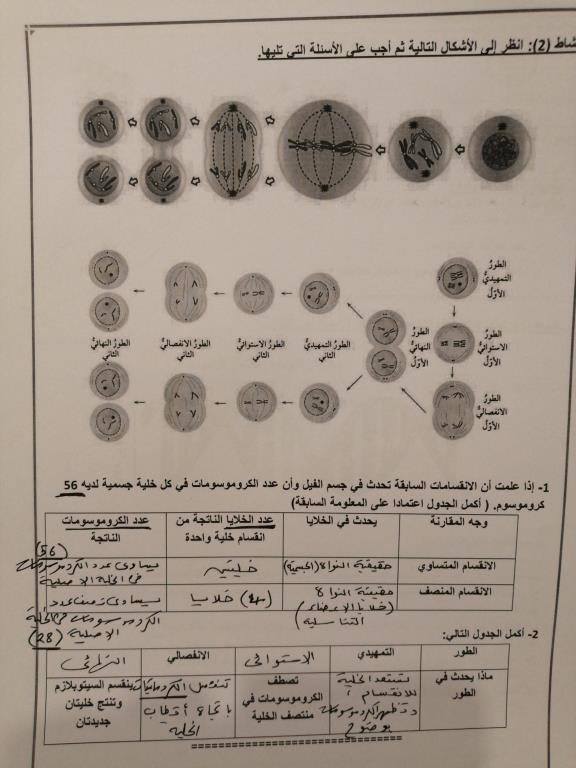 نشاط (2): انظر إلى الأشكال التالية ثم أجب على الأسئلة التي تليها.
الطورُ التمهيديُّ الأوّلُ
الطورُ الاستوائيُّ الأوّلُ
الطورُ الانفصاليُّ الأوّلُ
الطورُ النهائيُّ الأوّلُ
الطورُ التمهيديُّ الثاني
الطورُ الاستوائيُّ الثاني
الطورُ الانفصاليُّ الثاني
الطورُ النهائيُّ الثاني
1- إذا علمت أن الانقسامات السابقة تحدث في جسم الفيل وأن عدد الكروموسومات في كل خلية جسمية لديه 56
كروموسوم. ( أكمل الجدول اعتمادا على المعلومة السابقة)
وجه المقارنة
يحدث في الخلايا
عدد الخلايا الناتجة من انقسام خلية واحدة
عدد الكروموسومات الناتجة
الانقسام المتساوي
حقيقية النواة (الجسمية)
خليتين
(56)
يساوي عدد الكروموسومات
في الخلية الأصلية
الانقسام المنصف
حقيقية النواة
(خلايا الأعضاء
التناسلية)
(4) خلايا
يساوي نصف عدد
الكروموسومات في الخلية
الأصلية (28)
2- أكمل الجدول التالي:
الطور
التمهيدي
الاستوائي
الانفصالي
النهائي
ماذا يحدث في الطور
تستعد الخلية
للانقسام
وتظهر الكروموسومات
بوضوح
تصطف الكروموسومات في منتصف الخلية
تنفصل الكروماتيدات
باتجاه أقطاب
الخلية
ينقسم السيتوبلازم وتنتج خليتان جديدتان